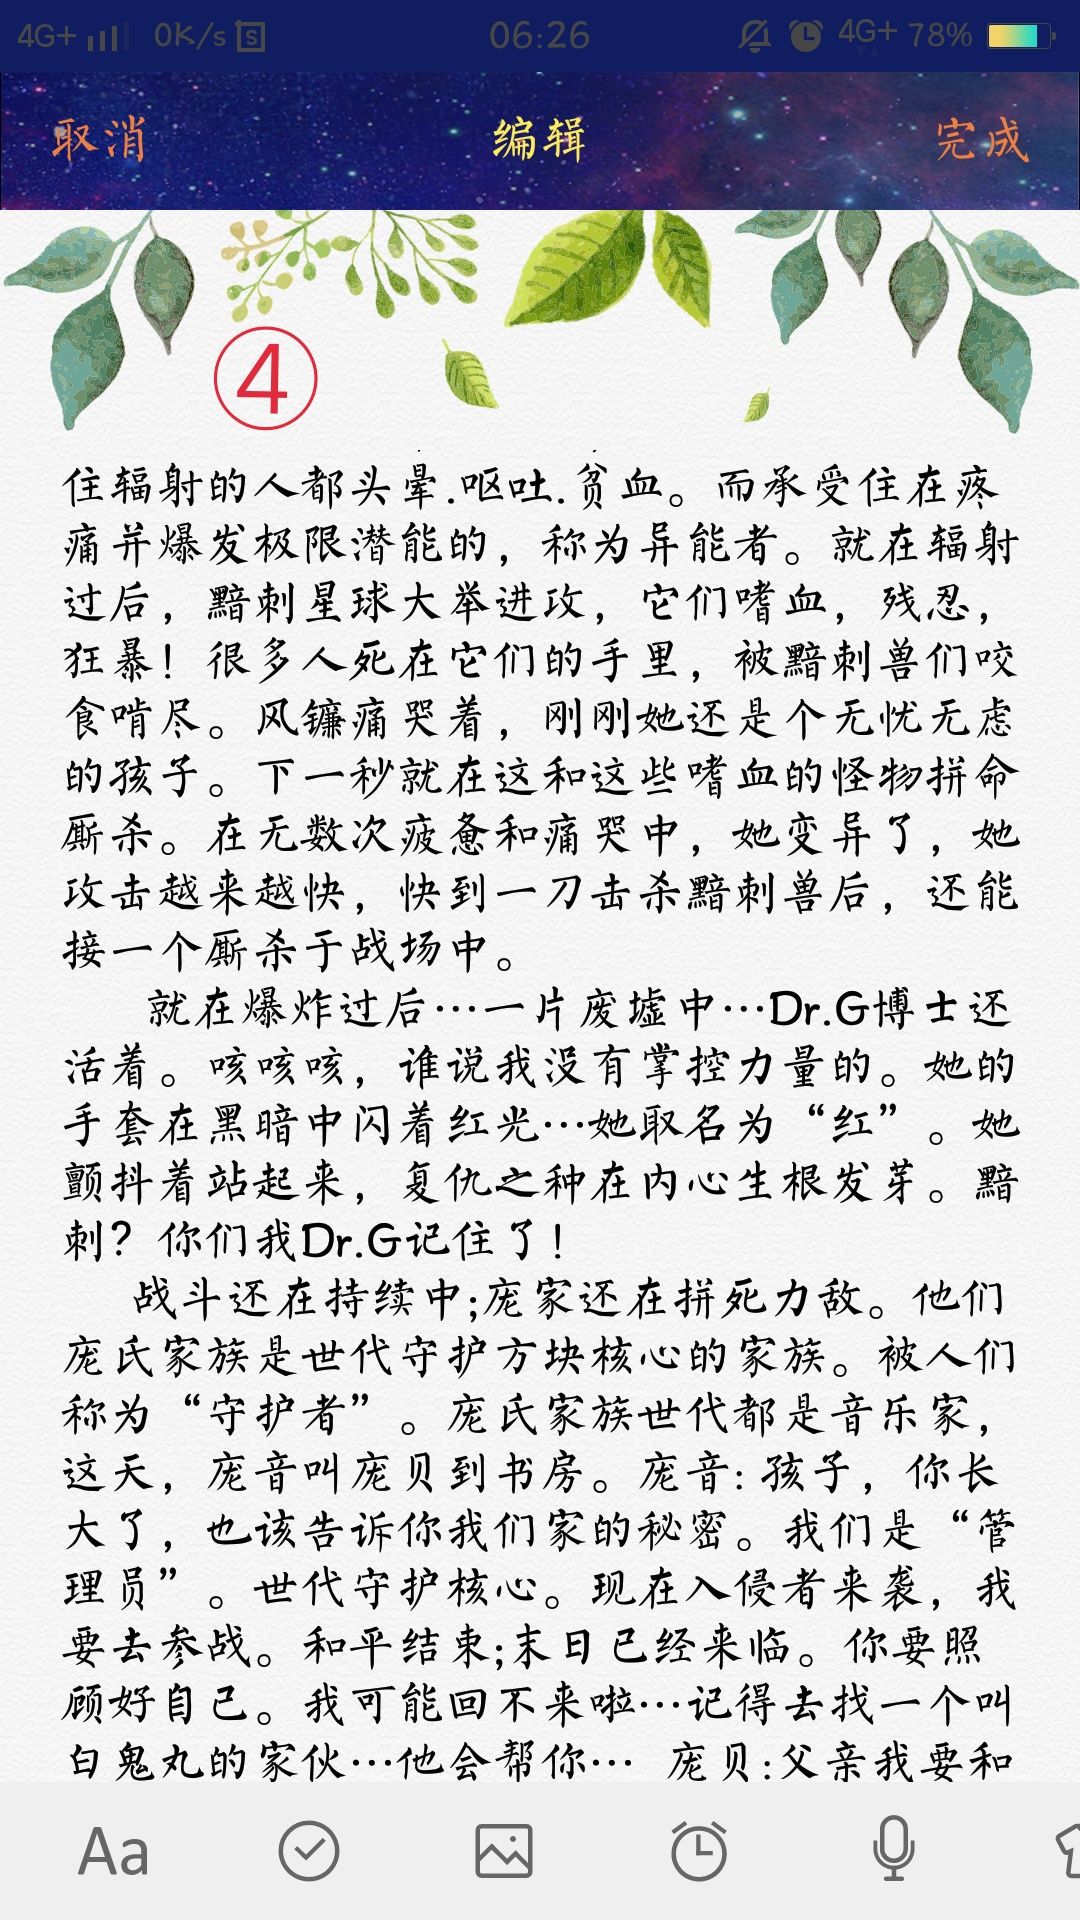 4G+ 0K/s 06:26 4G+ 78%
取消 编辑 完成
④
住辐射的人都头晕.呕吐.贫血。而承受住在疼
痛并爆发极限潜能的，称为异能者。就在辐射
过后，黯刺星球大举进攻，它们嗜血，残忍，
狂暴！很多人死在它们的手里，被黯刺兽们咬
食啃尽。风镰痛哭着，刚刚她还是个无忧无虑
的孩子。下一秒就在这和这些嗜血的怪物拼命
厮杀。在无数次疲惫和痛哭中，她变异了，她
攻击越来越快，快到一刀击杀黯刺兽后，还能
接一个厮杀于战场中。
就在爆炸过后…一片废墟中…Dr.G博士还
活着。咳咳咳，谁说我没有掌控力量的。她的
手套在黑暗中闪着红光…她取名为“红”。她
颤抖着站起来，复仇之种在内心生根发芽。黯
刺？你们我Dr.G记住了！
战斗还在持续中;庞家还在拼死力敌。他们
庞氏家族是世代守护方块核心的家族。被人们
称为“守护者”。庞氏家族世代都是音乐家，
这天，庞音叫庞贝到书房。庞音：孩子，你长
大了，也该告诉你我们家的秘密。我们是“管
理员”。世代守护核心。现在入侵者来袭，我
要去参战。和平结束;末日已经来临。你要照
顾好自己。我可能回不来啦…记得去找一个叫
白鬼丸的家伙…他会帮你… 庞贝:父亲我要和
Aa